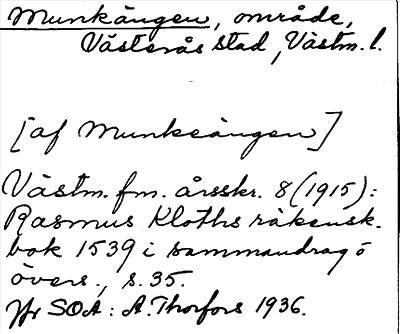 Munkängen, område,
Västerås stad, Västm. l.
[af Munkeängen]
Västm. fm. årsskr. 8 (1915):
Rasmus Kloths räkensk.
bok 1539 i sammandrag o
övers., s. 35.
Yr SOA: A. Thorfors 1936.